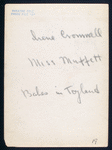 Irene Cromwell
Miss Muffett
Babes in Toyland